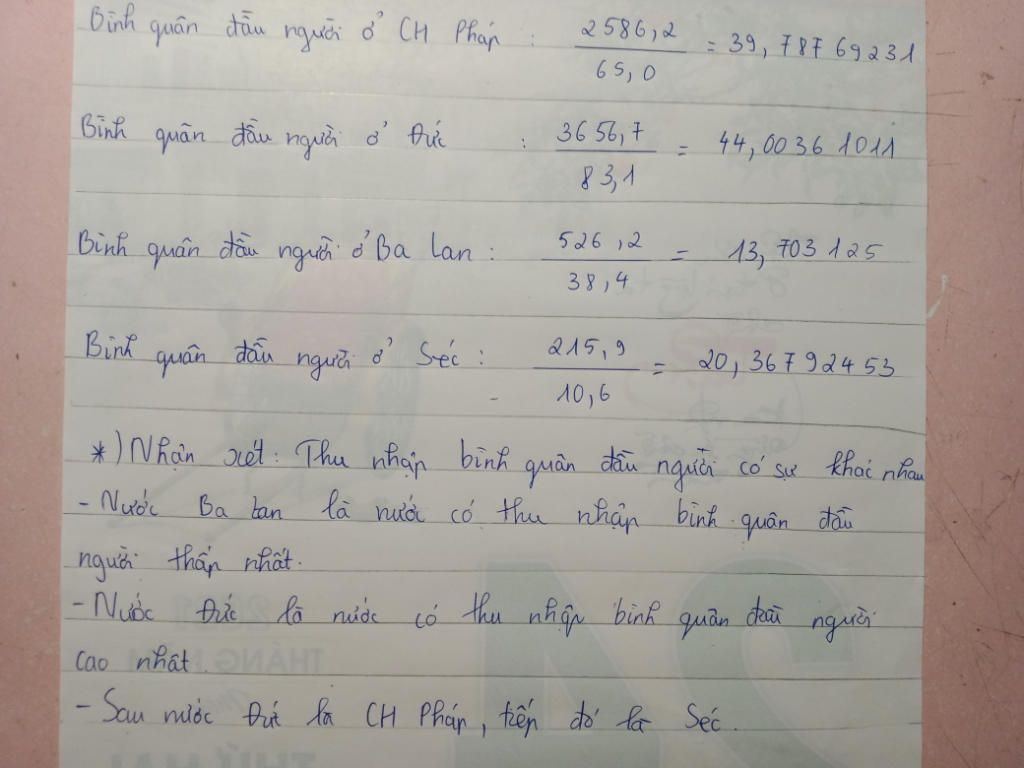 Bình quân đầu người ở CH Pháp : 2586,2 / 65,0 = 39,78769231
Bình quân đầu người ở Đức : 3656,7 / 83,1 = 44,00361011
Bình quân đầu người ở Ba Lan : 526,2 / 38,4 = 13,703125
Bình quân đầu người ở Séc : 215,9 / 10,6 = 20,36792453
*) Nhận xét: Thu nhập bình quân đầu người có sự khác nhau
- Nước Ba Lan là nước có thu nhập bình quân đầu
người thấp nhất.
- Nước Đức là nước có thu nhập bình quân đầu người
cao nhất.
- Sau nước Đức là CH Pháp, tiếp đó là Séc.
24
THÁNG